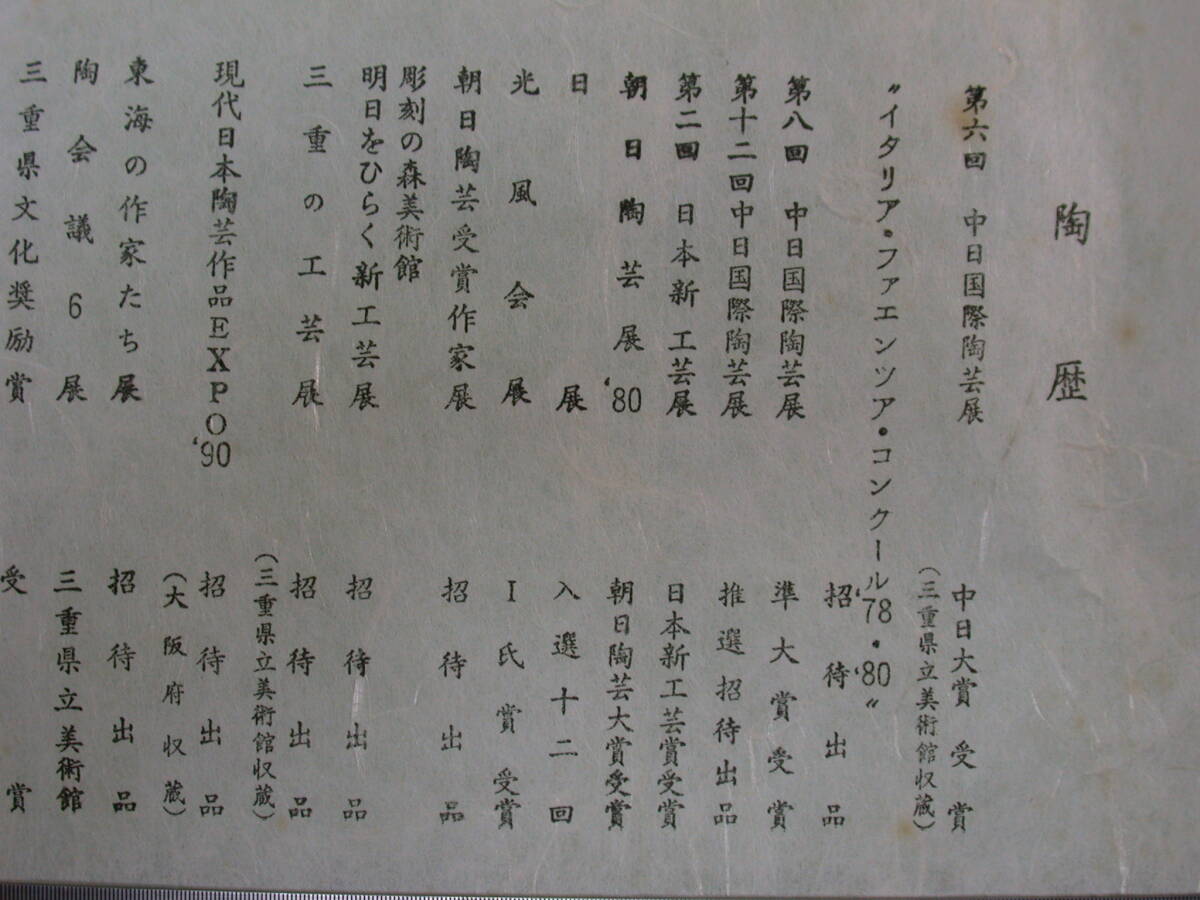 陶歴
第六回 中日国際陶芸展 中日大賞 受賞
（三重県立美術館収蔵）
〝イタリア・ファエンツア・コンクール'78・'80〟
招待出品
第八回 中日国際陶芸展 準大賞受賞
第十二回中日国際陶芸展 推選招待出品
第二回 日本新工芸展 日本新工芸賞受賞
朝日陶芸展'80 朝日陶芸大賞受賞
日展 入選十二回
光風会展 I氏賞受賞
朝日陶芸受賞作家展 招待出品
彫刻の森美術館
明日をひらく新工芸展 招待出品
三重の工芸展 招待出品
（三重県立美術館収蔵）
現代日本陶芸作品EXPO'90 招待出品
（大阪府収蔵）
東海の作家たち展 招待出品
陶会議6展 三重県立美術館
三重県文化奨励賞 受賞